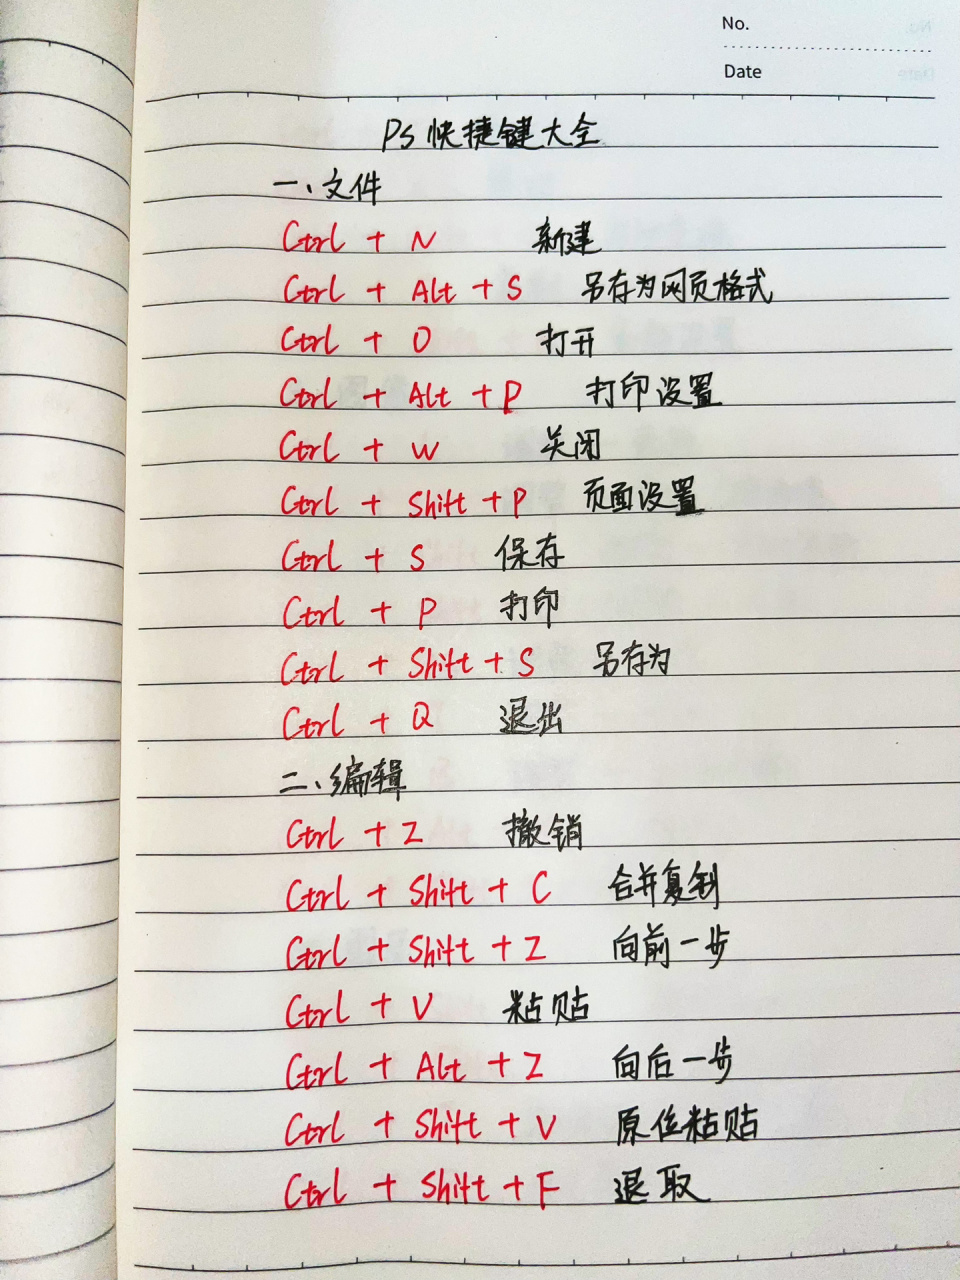 No.
Date
PS快捷键大全
一、文件
Ctrl + N 新建
Ctrl + Alt + S 另存为网页格式
Ctrl + O 打开
Ctrl + Alt + P 打印设置
Ctrl + W 关闭
Ctrl + Shift + P 页面设置
Ctrl + S 保存
Ctrl + P 打印
Ctrl + Shift + S 另存为
Ctrl + Q 退出
二、编辑
Ctrl + Z 撤销
Ctrl + Shift + C 合并复制
Ctrl + Shift + Z 向前一步
Ctrl + V 粘贴
Ctrl + Alt + Z 向后一步
Ctrl + Shift + V 原位粘贴
Ctrl + Shift + F 退取